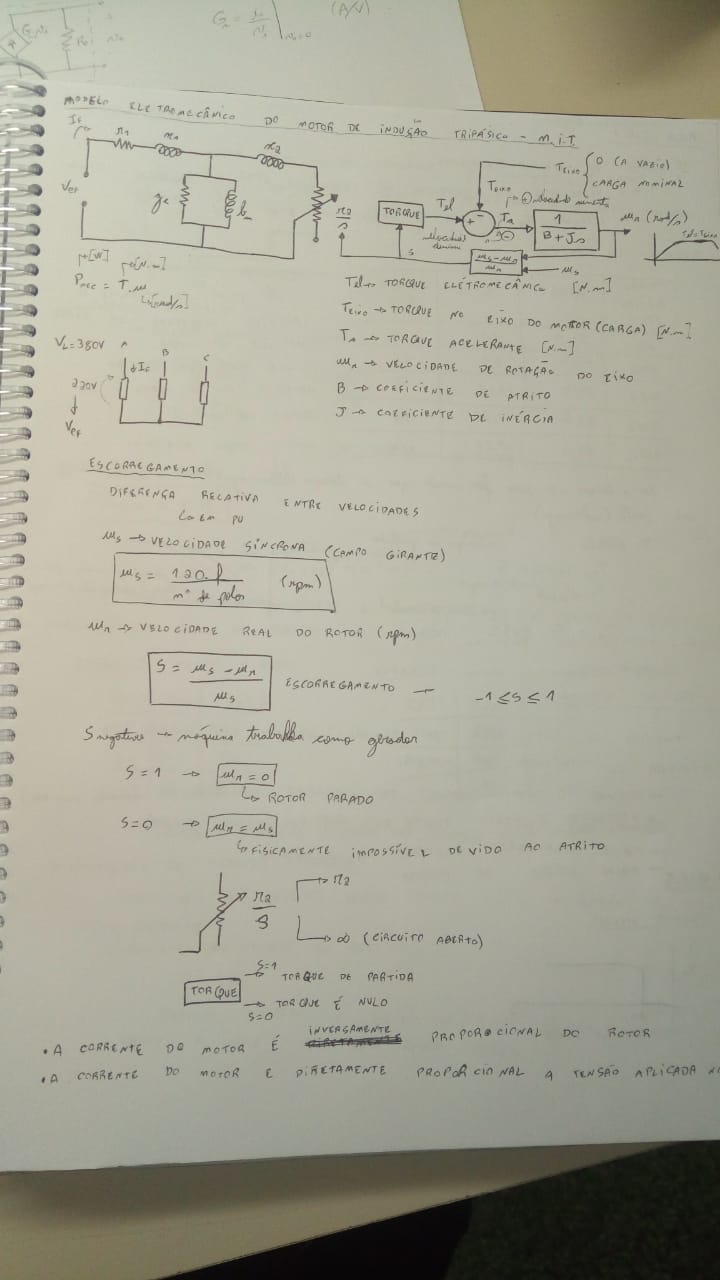 (A/V)
MODELO ELETROMECÂNICO DO MOTOR DE INDUÇÃO TRIFÁSICO - M.I.T.
If
r1
x1
x2
Vef
gc
bm
r2/s
TORQUE
Tel
+
-
Teixo
Teixo { 0 (A VAZIO)
CARGA NOMINAL
Ta
⊕ velocidade aumenta
⊖
velocidade diminui
1 / B + Js
nr (rad/s)
Tel = Teixo
s
ns - nr / ns
ns
[W] [N.m]
Pmec = T.n
[rad/s]
Tel → TORQUE ELÉTROMECÂNICO [N.m]
Teixo → TORQUE NO EIXO DO MOTOR (CARGA) [N.m]
Ta → TORQUE ACELERANTE [N.m]
nr → VELOCIDADE DE ROTAÇÃO DO EIXO
B → COEFICIENTE DE ATRITO
J → COEFICIENTE DE INÉRCIA
VL = 380V
A
B
C
If
220V
Vef
ESCORREGAMENTO
DIFERENÇA RELATIVA ENTRE VELOCIDADES
EM PU
ns → VELOCIDADE SÍNCRONA (CAMPO GIRANTE)
ns = 120.f / nº de polos (rpm)
nr → VELOCIDADE REAL DO ROTOR (rpm)
S = ns - nr / ns ESCORREGAMENTO → -1 ≤ S ≤ 1
S negativo → máquina trabalha como gerador
S = 1 → nr = 0
↳ ROTOR PARADO
S = 0 → nr = ns
↳ FISICAMENTE IMPOSSÍVEL DEVIDO AO ATRITO
r2/s → r2
→ ∞ (CIRCUITO ABERTO)
TORQUE
S=1 → TORQUE DE PARTIDA
S=0 → TORQUE É NULO
• A CORRENTE DO MOTOR É INVERSAMENTE PROPORCIONAL DO ROTOR
• A CORRENTE DO MOTOR E DIRETAMENTE PROPORCIONAL A TENSÃO APLICADA